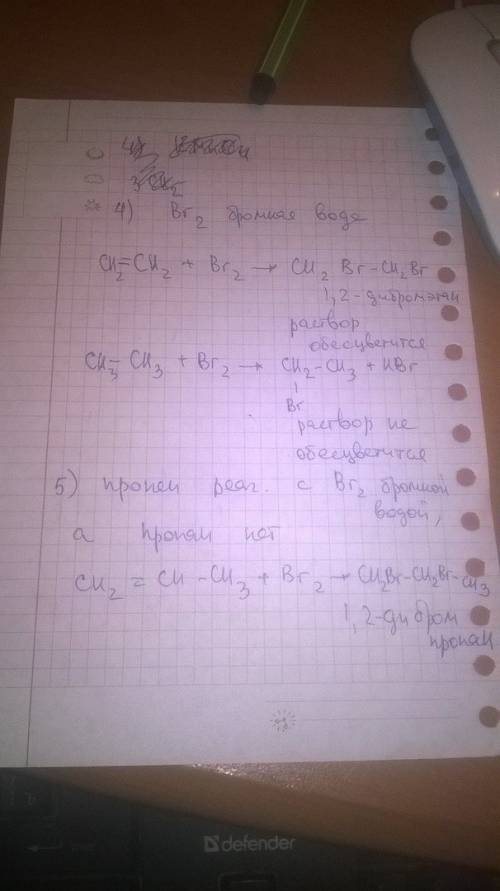 4) Br2 бромная вода
CH2=CH2 + Br2 → CH2 Br-CH2Br
1,2-дибромэтан
раствор
обесцветится
CH3-CH3 + Br2 → CH2-CH3 + HBr
Br
раствор не
обесцветится
5) пропен реаг. с Br2 бромной
водой,
а пропан нет
CH2 = CH - CH3 + Br2 → CH2Br-CH2Br-CH3
1,2-дибром
пропан
defender